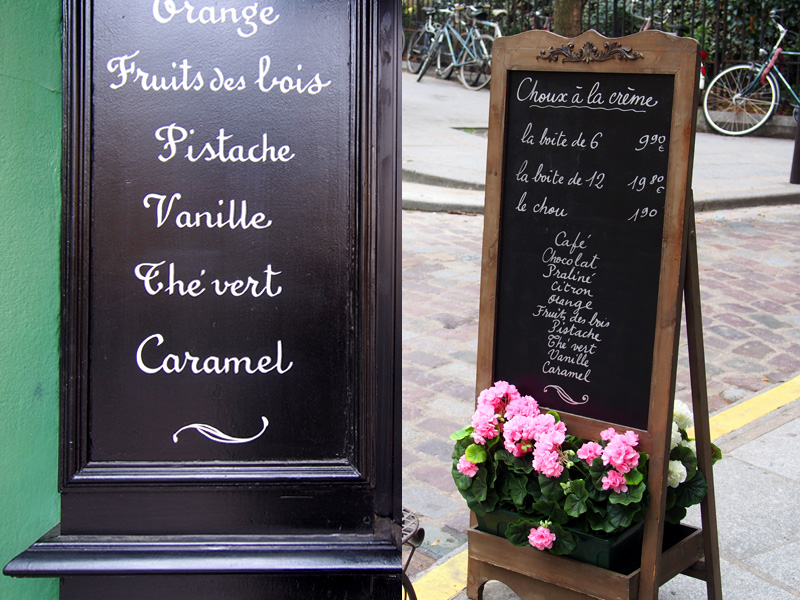 Orange
Fruits des bois
Pistache
Vanille
Thé vert
Caramel
Choux à la crème
la boite de 6 9 90 €
la boite de 12 19 80 €
le chou 1 90
Café
Chocolat
Praliné
Citron
Orange
Fruits des bois
Pistache
Thé vert
Vanille
Caramel